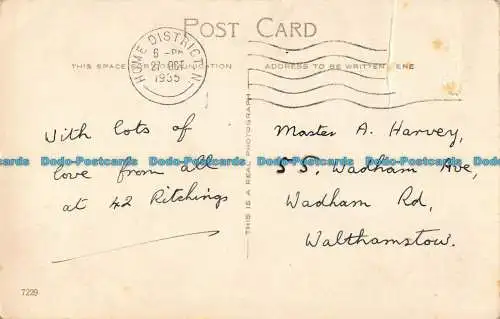 POST CARD
HOME DISTRICT. N.
6 - PM
27 OCT
1935
THIS SPACE FOR COMMUNICATION
ADDRESS TO BE WRITTEN HERE
With lots of
love from all
at 42 Ritchings
THIS IS A REAL PHOTOGRAPH
Master A. Harvey,
55, Wadham Ave,
Wadham Rd,
Walthamstow.
Dodo-Postcards Dodo-Postcards Dodo-Postcards Dodo-Postcards
7229